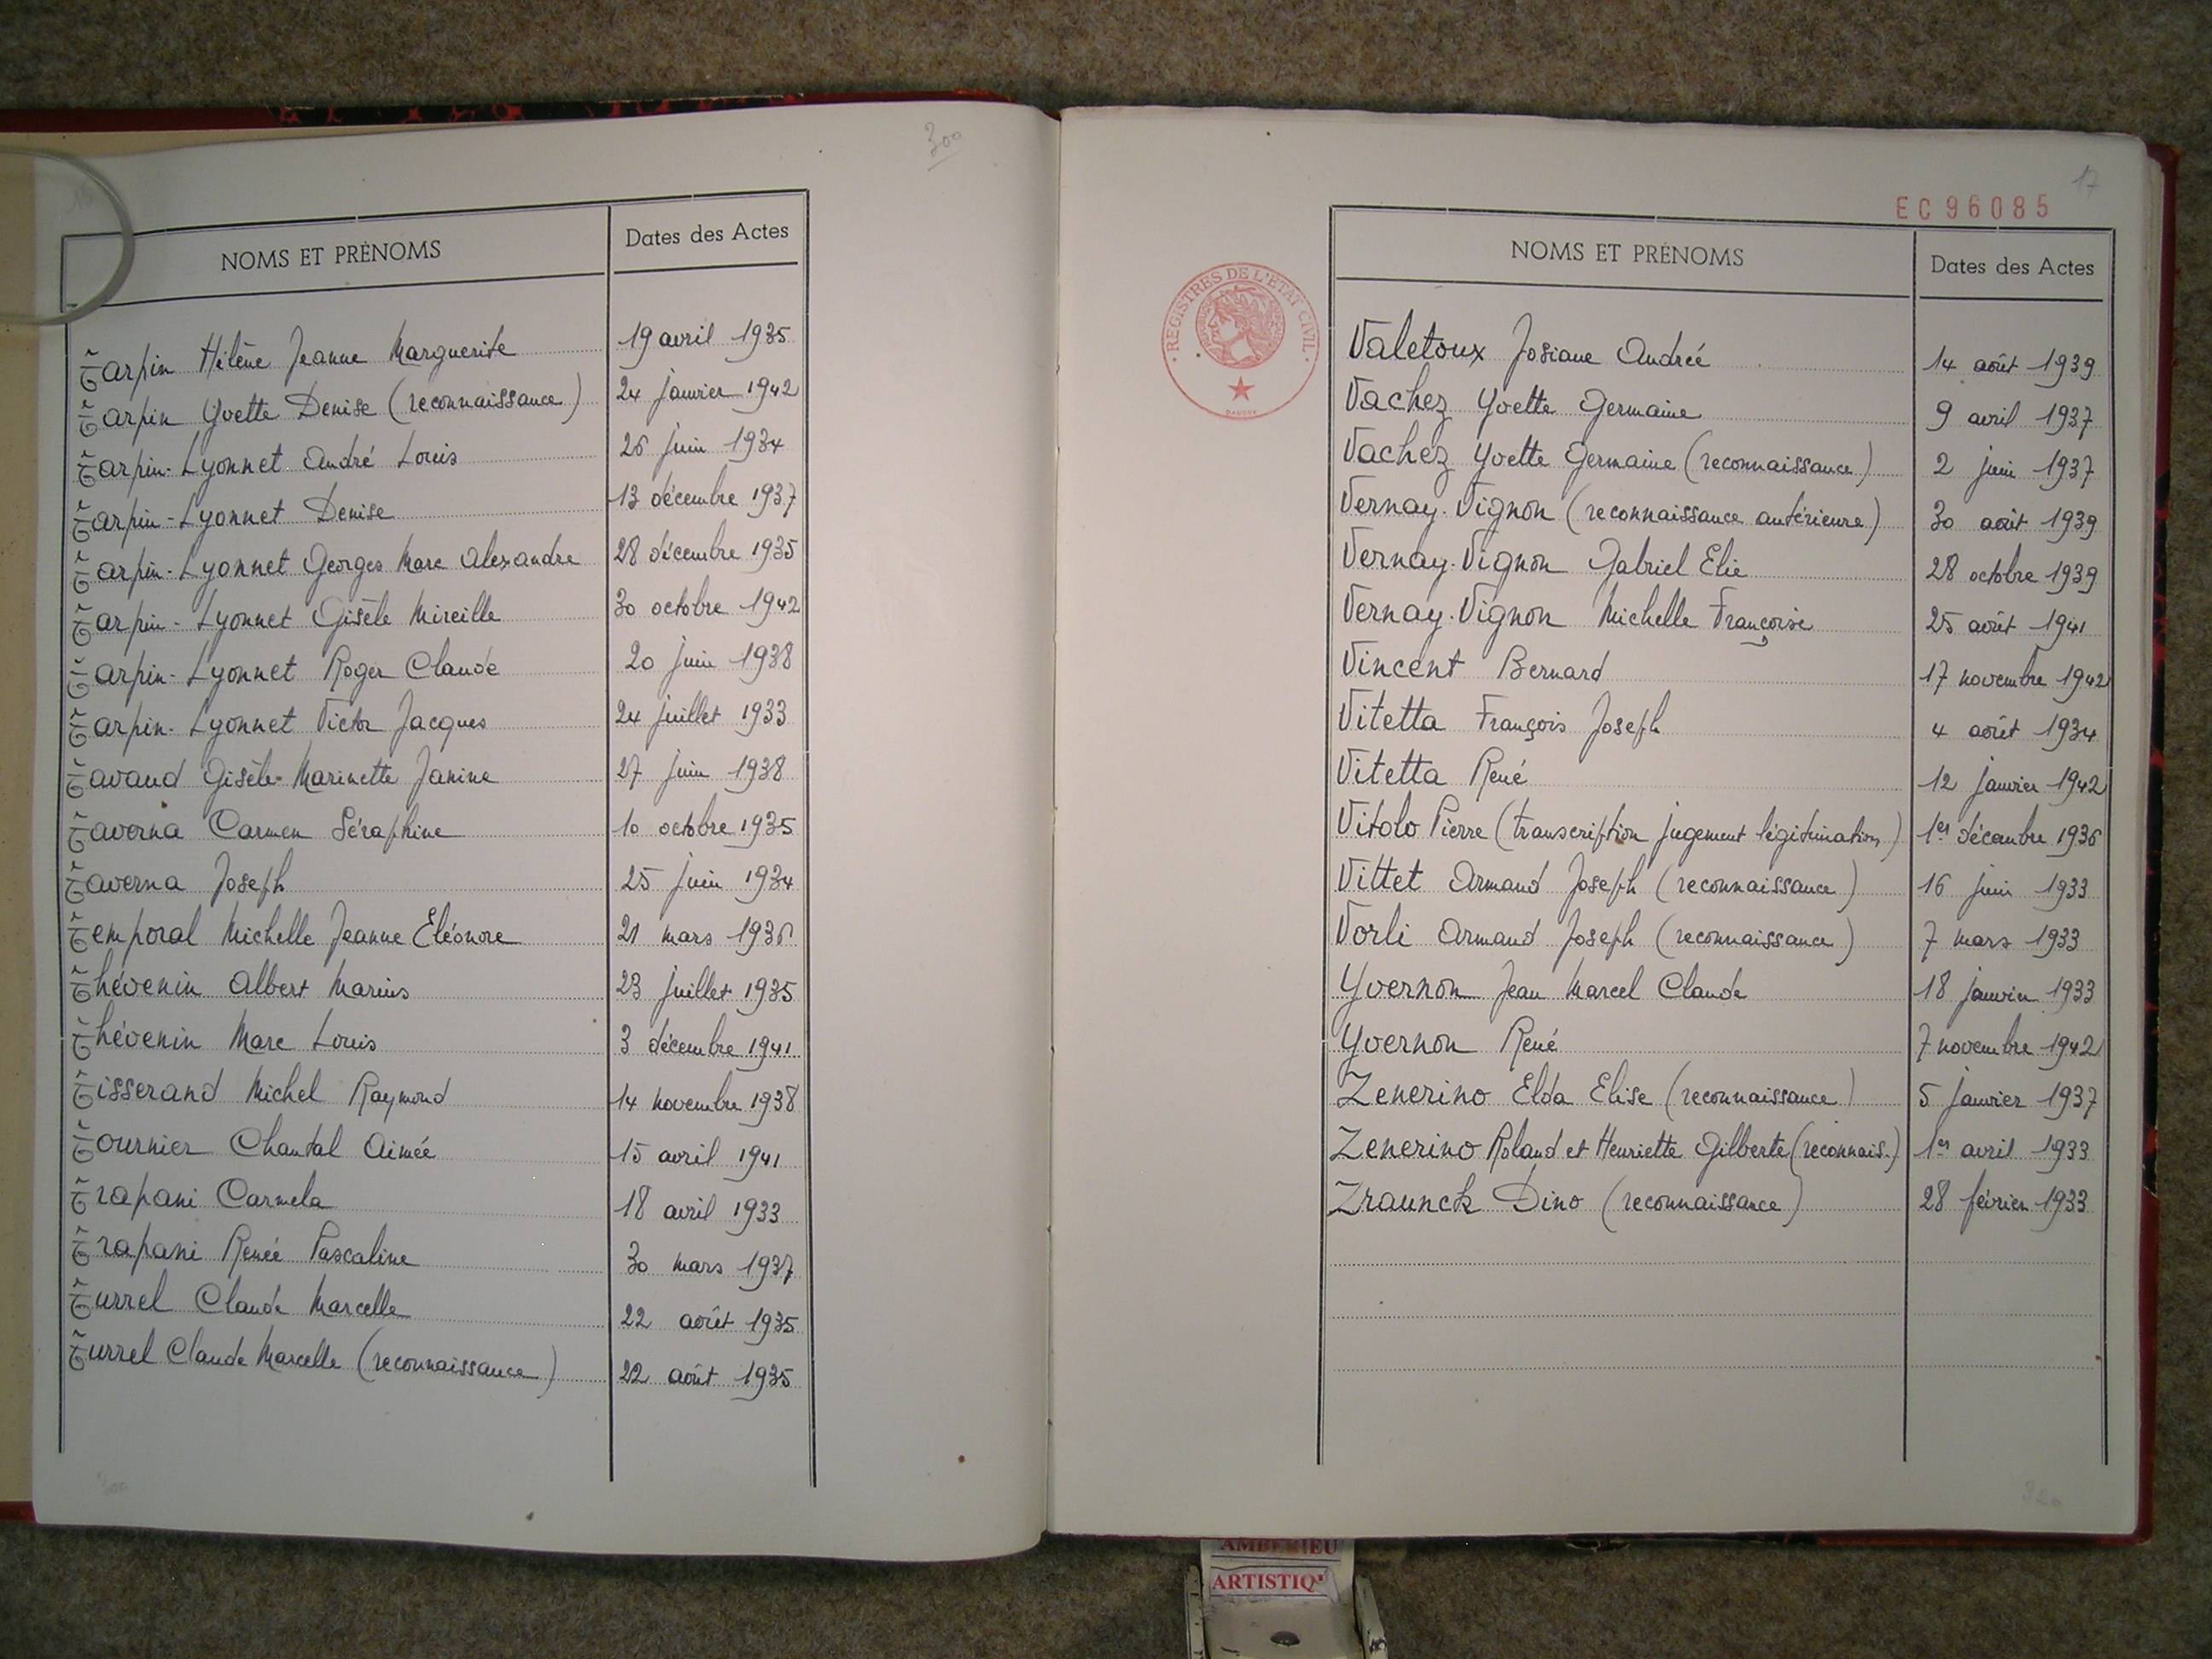 300
NOMS ET PRÉNOMS
Dates des Actes
Tarpin Hélène Jeanne Marguerite 19 avril 1935
Tarpin Yvette Denise (reconnaissance) 24 janvier 1942
Tarpin-Lyonnet André Louis 26 juin 1934
Tarpin-Lyonnet Denise 13 décembre 1937
Tarpin-Lyonnet Georges Marc Alexandre 28 décembre 1935
Tarpin-Lyonnet Gisèle Mireille 30 octobre 1942
Tarpin-Lyonnet Roger Claude 20 juin 1938
Tarpin-Lyonnet Victor Jacques 24 juillet 1933
Tavaud Gisèle Marinette Janine 27 juin 1938
Taverna Carmen Séraphine 10 octobre 1935
Taverna Joseph 25 juin 1934
Temporal Michelle Jeanne Eléonore 21 mars 1936
Thévenin Albert Marius 23 juillet 1935
Thévenin Marc Louis 3 décembre 1941
Tisserand Michel Raymond 14 novembre 1938
Tournier Chantal Aimée 15 avril 1941
Trapani Carmela 18 avril 1933
Trapani Renée Pascaline 30 mars 1937
Turrel Claude Marcelle 22 août 1935
Turrel Claude Marcelle (reconnaissance) 22 août 1935
300
17
EC96085
REGISTRES DE L'ETAT CIVIL
NOMS ET PRÉNOMS
Dates des Actes
Valetoux Josiane Andrée 14 août 1939
Vachez Yvette Germaine 9 avril 1937
Vachez Yvette Germaine (reconnaissance) 2 juin 1937
Vernay-Vignon (reconnaissance antérieure) 30 août 1939
Vernay-Vignon Gabriel Elie 28 octobre 1939
Vernay-Vignon Michelle Françoise 25 août 1941
Vincent Bernard 17 novembre 1942
Vitetta François Joseph 4 août 1934
Vitetta René 12 janvier 1942
Vitolo Pierre (transcription jugement légitimation) 1er décembre 1936
Vittet Armand Joseph (reconnaissance) 16 juin 1933
Vorli Armand Joseph (reconnaissance) 7 mars 1933
Yvernon Jean Marcel Claude 18 janvier 1933
Yvernon René 7 novembre 1942
Zenerino Elda Elise (reconnaissance) 5 janvier 1937
Zenerino Roland et Henriette Gilberte (reconnais.) 1er avril 1933
Zraunck Dino (reconnaissance) 28 février 1933
AMBERIEU
ARTISTIQ